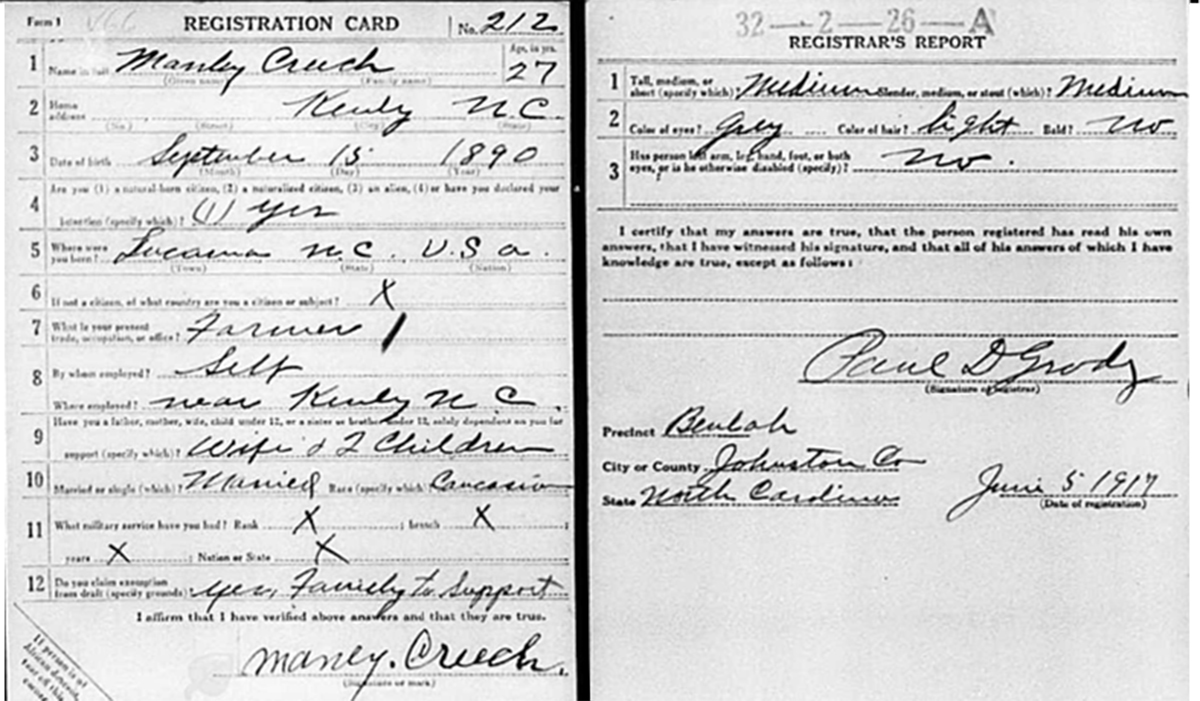 Form 1 REGISTRATION CARD No. 212
1 Name in full Manley Creech Age, in yrs. 27
(Given name) (Family name)
2 Home address Kenly N.C.
(No.) (Street) (City) (State)
3 Date of birth September 15 1890
(Month) (Day) (Year)
4 Are you (1) a natural-born citizen, (2) a naturalized citizen, (3) an alien, (4) or have you declared your
intention (specify which)? (1) yes
5 Where were you born? Lucama N.C. U.S a.
(Town) (State) (Nation)
6 If not a citizen, of what country are you a citizen or subject? X
7 What is your present trade, occupation, or office? Farmer
8 By whom employed? Self
Where employed? near Kenly N.C.
9 Have you a father, mother, wife, child under 12, or a sister or brother under 12, solely dependent on you for
support (specify which)? Wife & 2 Children
10 Married or single (which)? Married Race (specify which)? Caucasian
11 What military service have you had? Rank X ; branch X ;
years X ; Nation or State X
12 Do you claim exemption from draft (specify grounds)? yes, Family to Support
I affirm that I have verified above answers and that they are true.
Manley. Creech.
(Signature or mark)
If person is of
African descent,
tear off this
corner
32—2—26—A
REGISTRAR'S REPORT
1 Tall, medium, or short (specify which)? Medium Slender, medium, or stout (which)? Medium
2 Color of eyes? Grey Color of hair? light Bald? No
3 Has person lost arm, leg, hand, foot, or both eyes, or is he otherwise disabled (specify)? No.
I certify that my answers are true, that the person registered has read his own
answers, that I have witnessed his signature, and that all of his answers of which I have
knowledge are true, except as follows:
Paul D Grady
(Signature of registrar)
Precinct Beulah
City or County Johnston Co
State North Carolina
June 5 1917
(Date of registration)